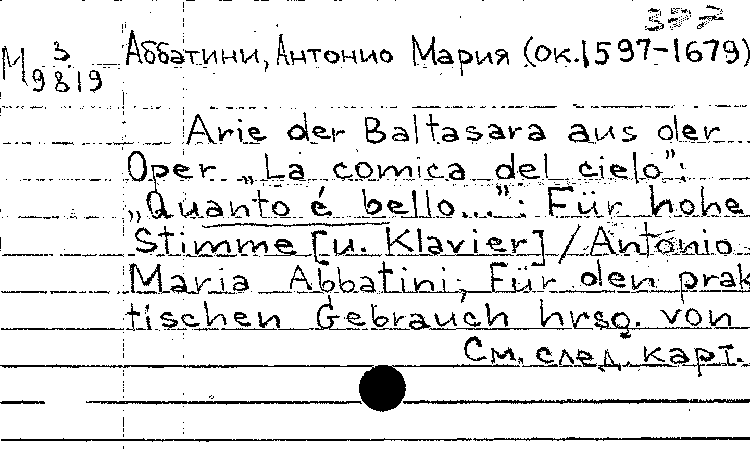 377
М 3/9819 Аббатини, Антонио Мария (ок.1597-1679)
Arie der Baltasara aus der
Oper „La comica del cielo":
„Quanto é bello...": Für hohe
Stimme [u. Klavier] / Antonio
Maria Abbatini; Für den prak
tischen Gebrauch hrsg. von
См. след. карт.